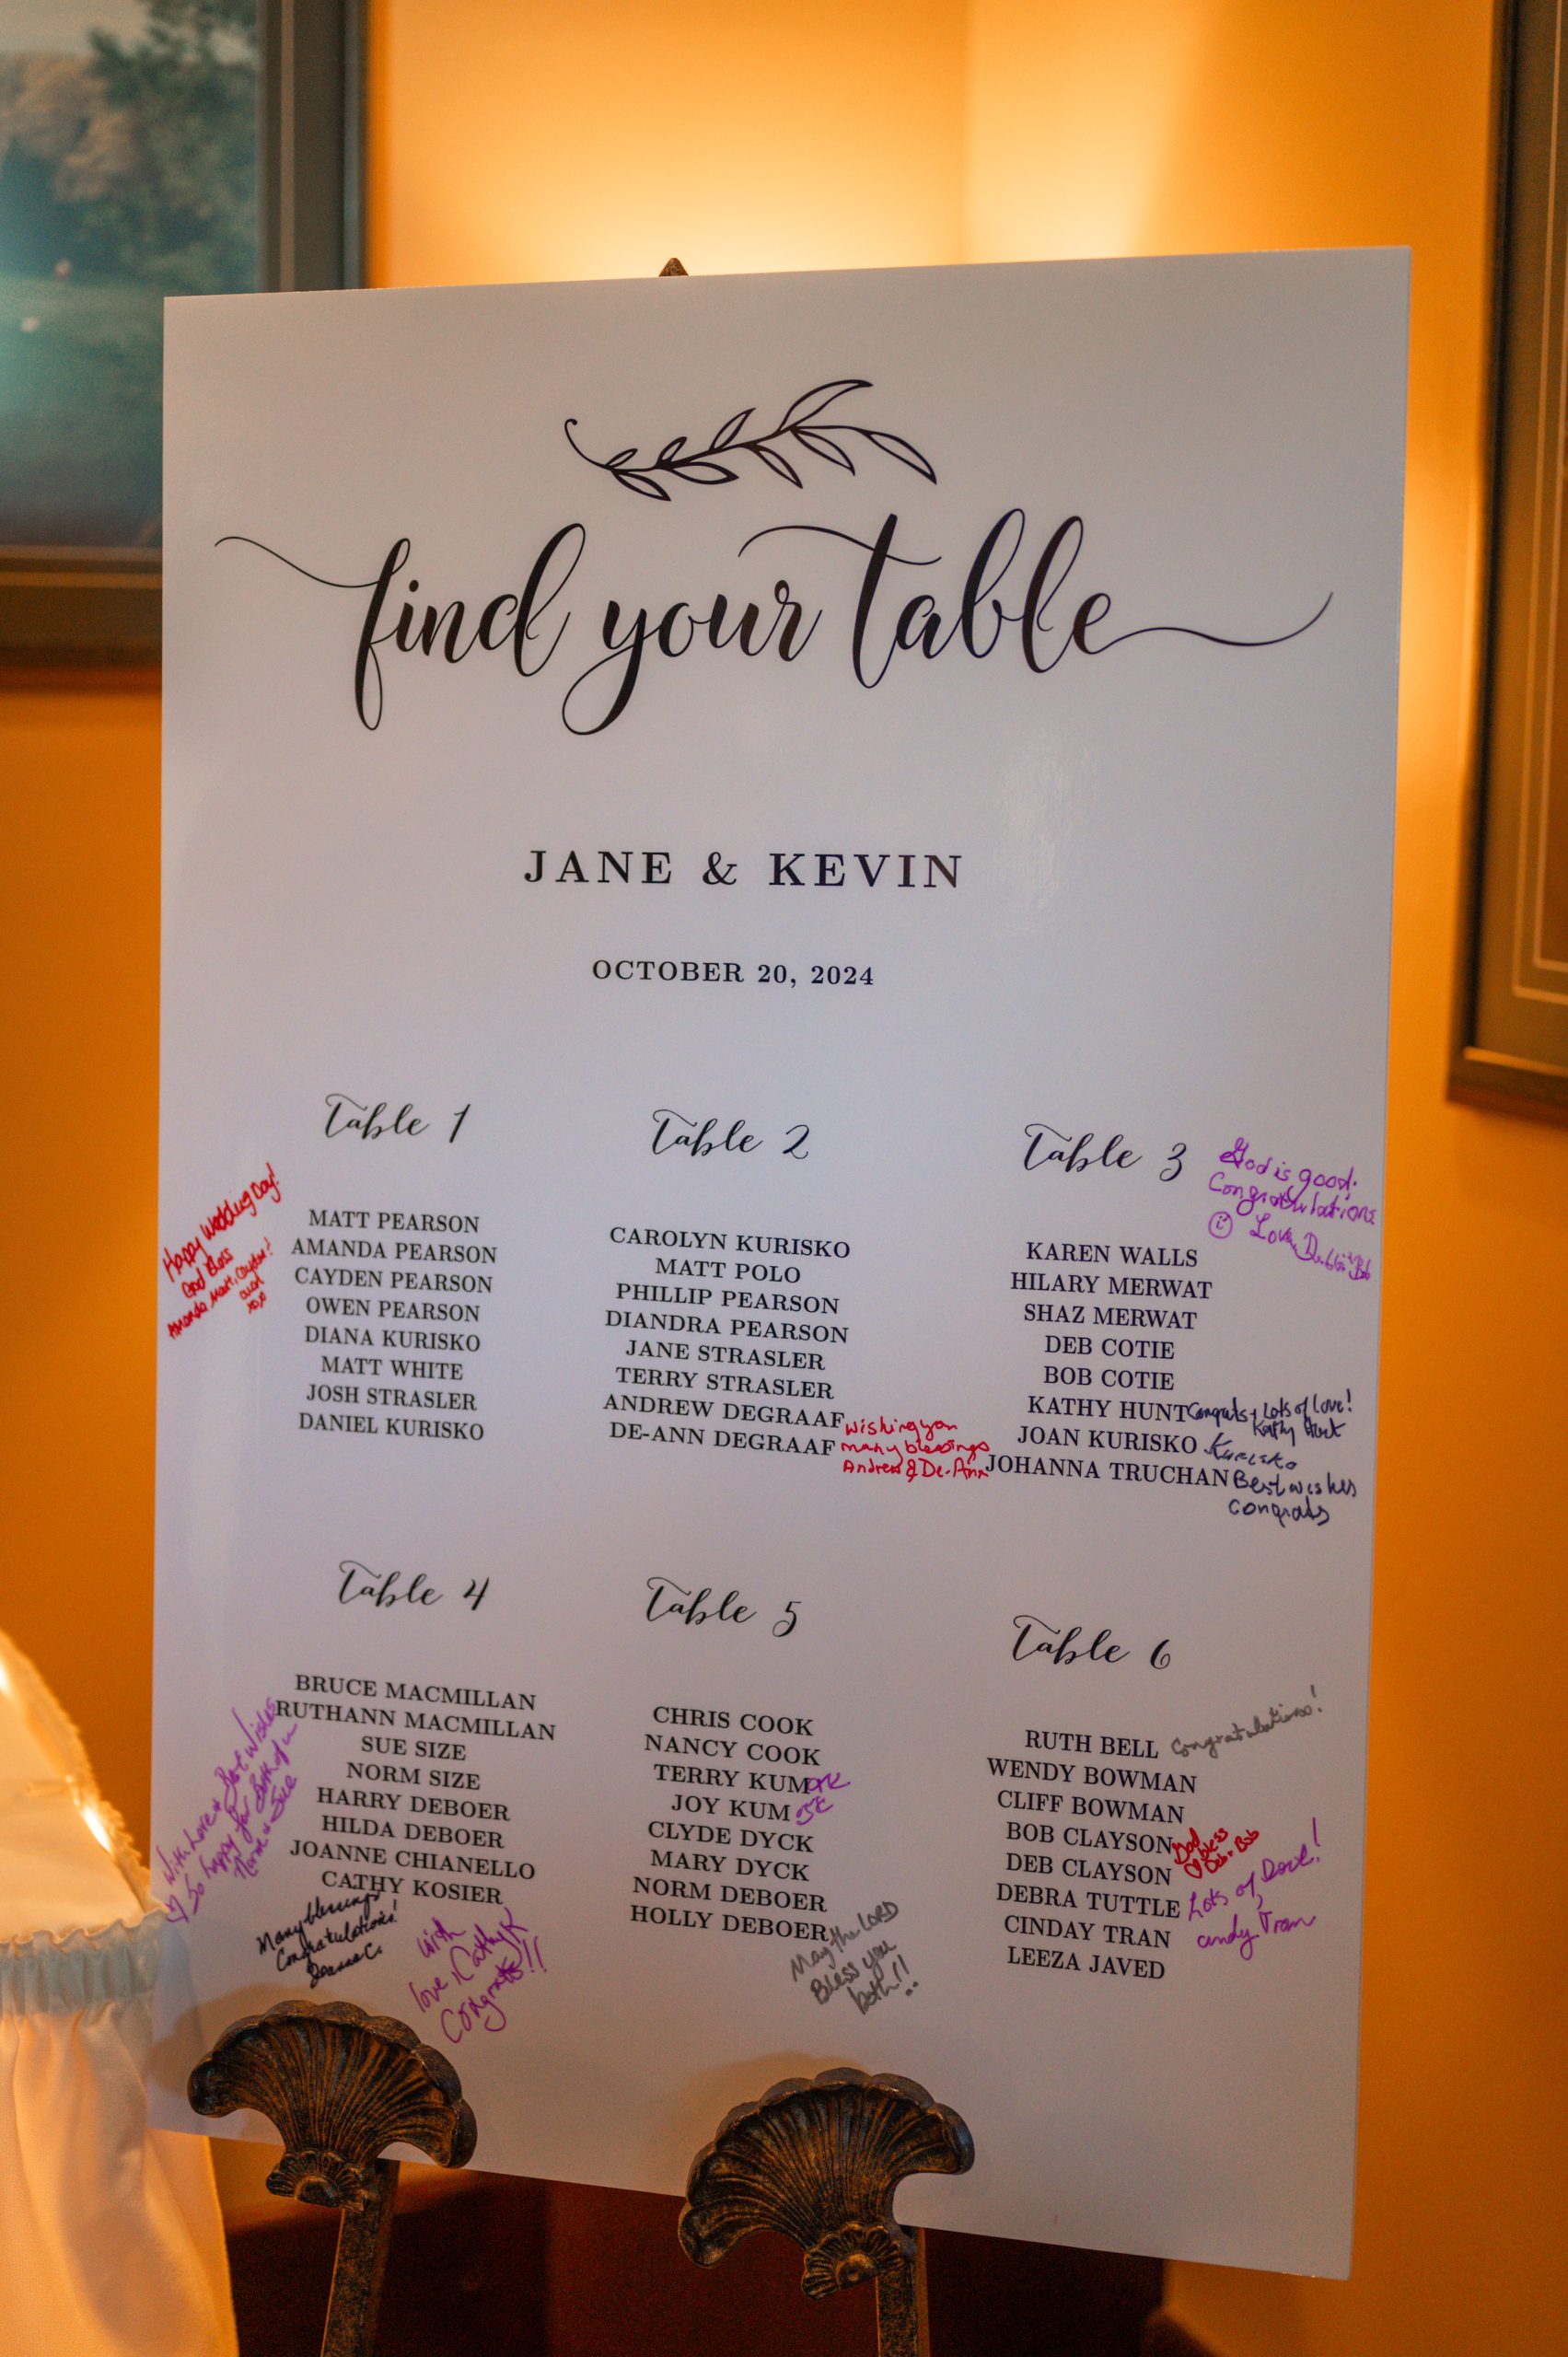 find your table
JANE & KEVIN
OCTOBER 20, 2024
Table 1
MATT PEARSON
AMANDA PEARSON
CAYDEN PEARSON
OWEN PEARSON
DIANA KURISKO
MATT WHITE
JOSH STRASLER
DANIEL KURISKO
Happy Wedding Day!
God Bless
Amanda, Matt, Cayden!
xoxo
Table 2
CAROLYN KURISKO
MATT POLO
PHILLIP PEARSON
DIANDRA PEARSON
JANE STRASLER
TERRY STRASLER
ANDREW DEGRAAF
DE-ANN DEGRAAF
wishing you
many blessings
Andrew & De-Ann
Table 3
God is good.
Congratulations
Love, Debbie + Bob
KAREN WALLS
HILARY MERWAT
SHAZ MERWAT
DEB COTIE
BOB COTIE
KATHY HUNT Congrats + Lots of love!
Kathy Hunt
JOAN KURISKO Kurisko
JOHANNA TRUCHAN Best wishes
congrats
Table 4
BRUCE MACMILLAN
RUTHANN MACMILLAN
SUE SIZE
NORM SIZE
HARRY DEBOER
HILDA DEBOER
JOANNE CHIANELLO
CATHY KOSIER
With Love & Best Wishes
So happy for both of u
Norm & Sue
Many blessings
Congratulations!
Joanne C.
with
love, Cathy K
Congrats!!
Table 5
CHRIS COOK
NANCY COOK
TERRY KUM
JOY KUM
CLYDE DYCK
MARY DYCK
NORM DEBOER
HOLLY DEBOER
May the LORD
Bless you
both!!
Table 6
RUTH BELL Congratulations!
WENDY BOWMAN
CLIFF BOWMAN
BOB CLAYSON
DEB CLAYSON
God
bless
Deb + Bob
DEBRA TUTTLE Lots of Love!
CINDAY TRAN Cindy Tran
LEEZA JAVED